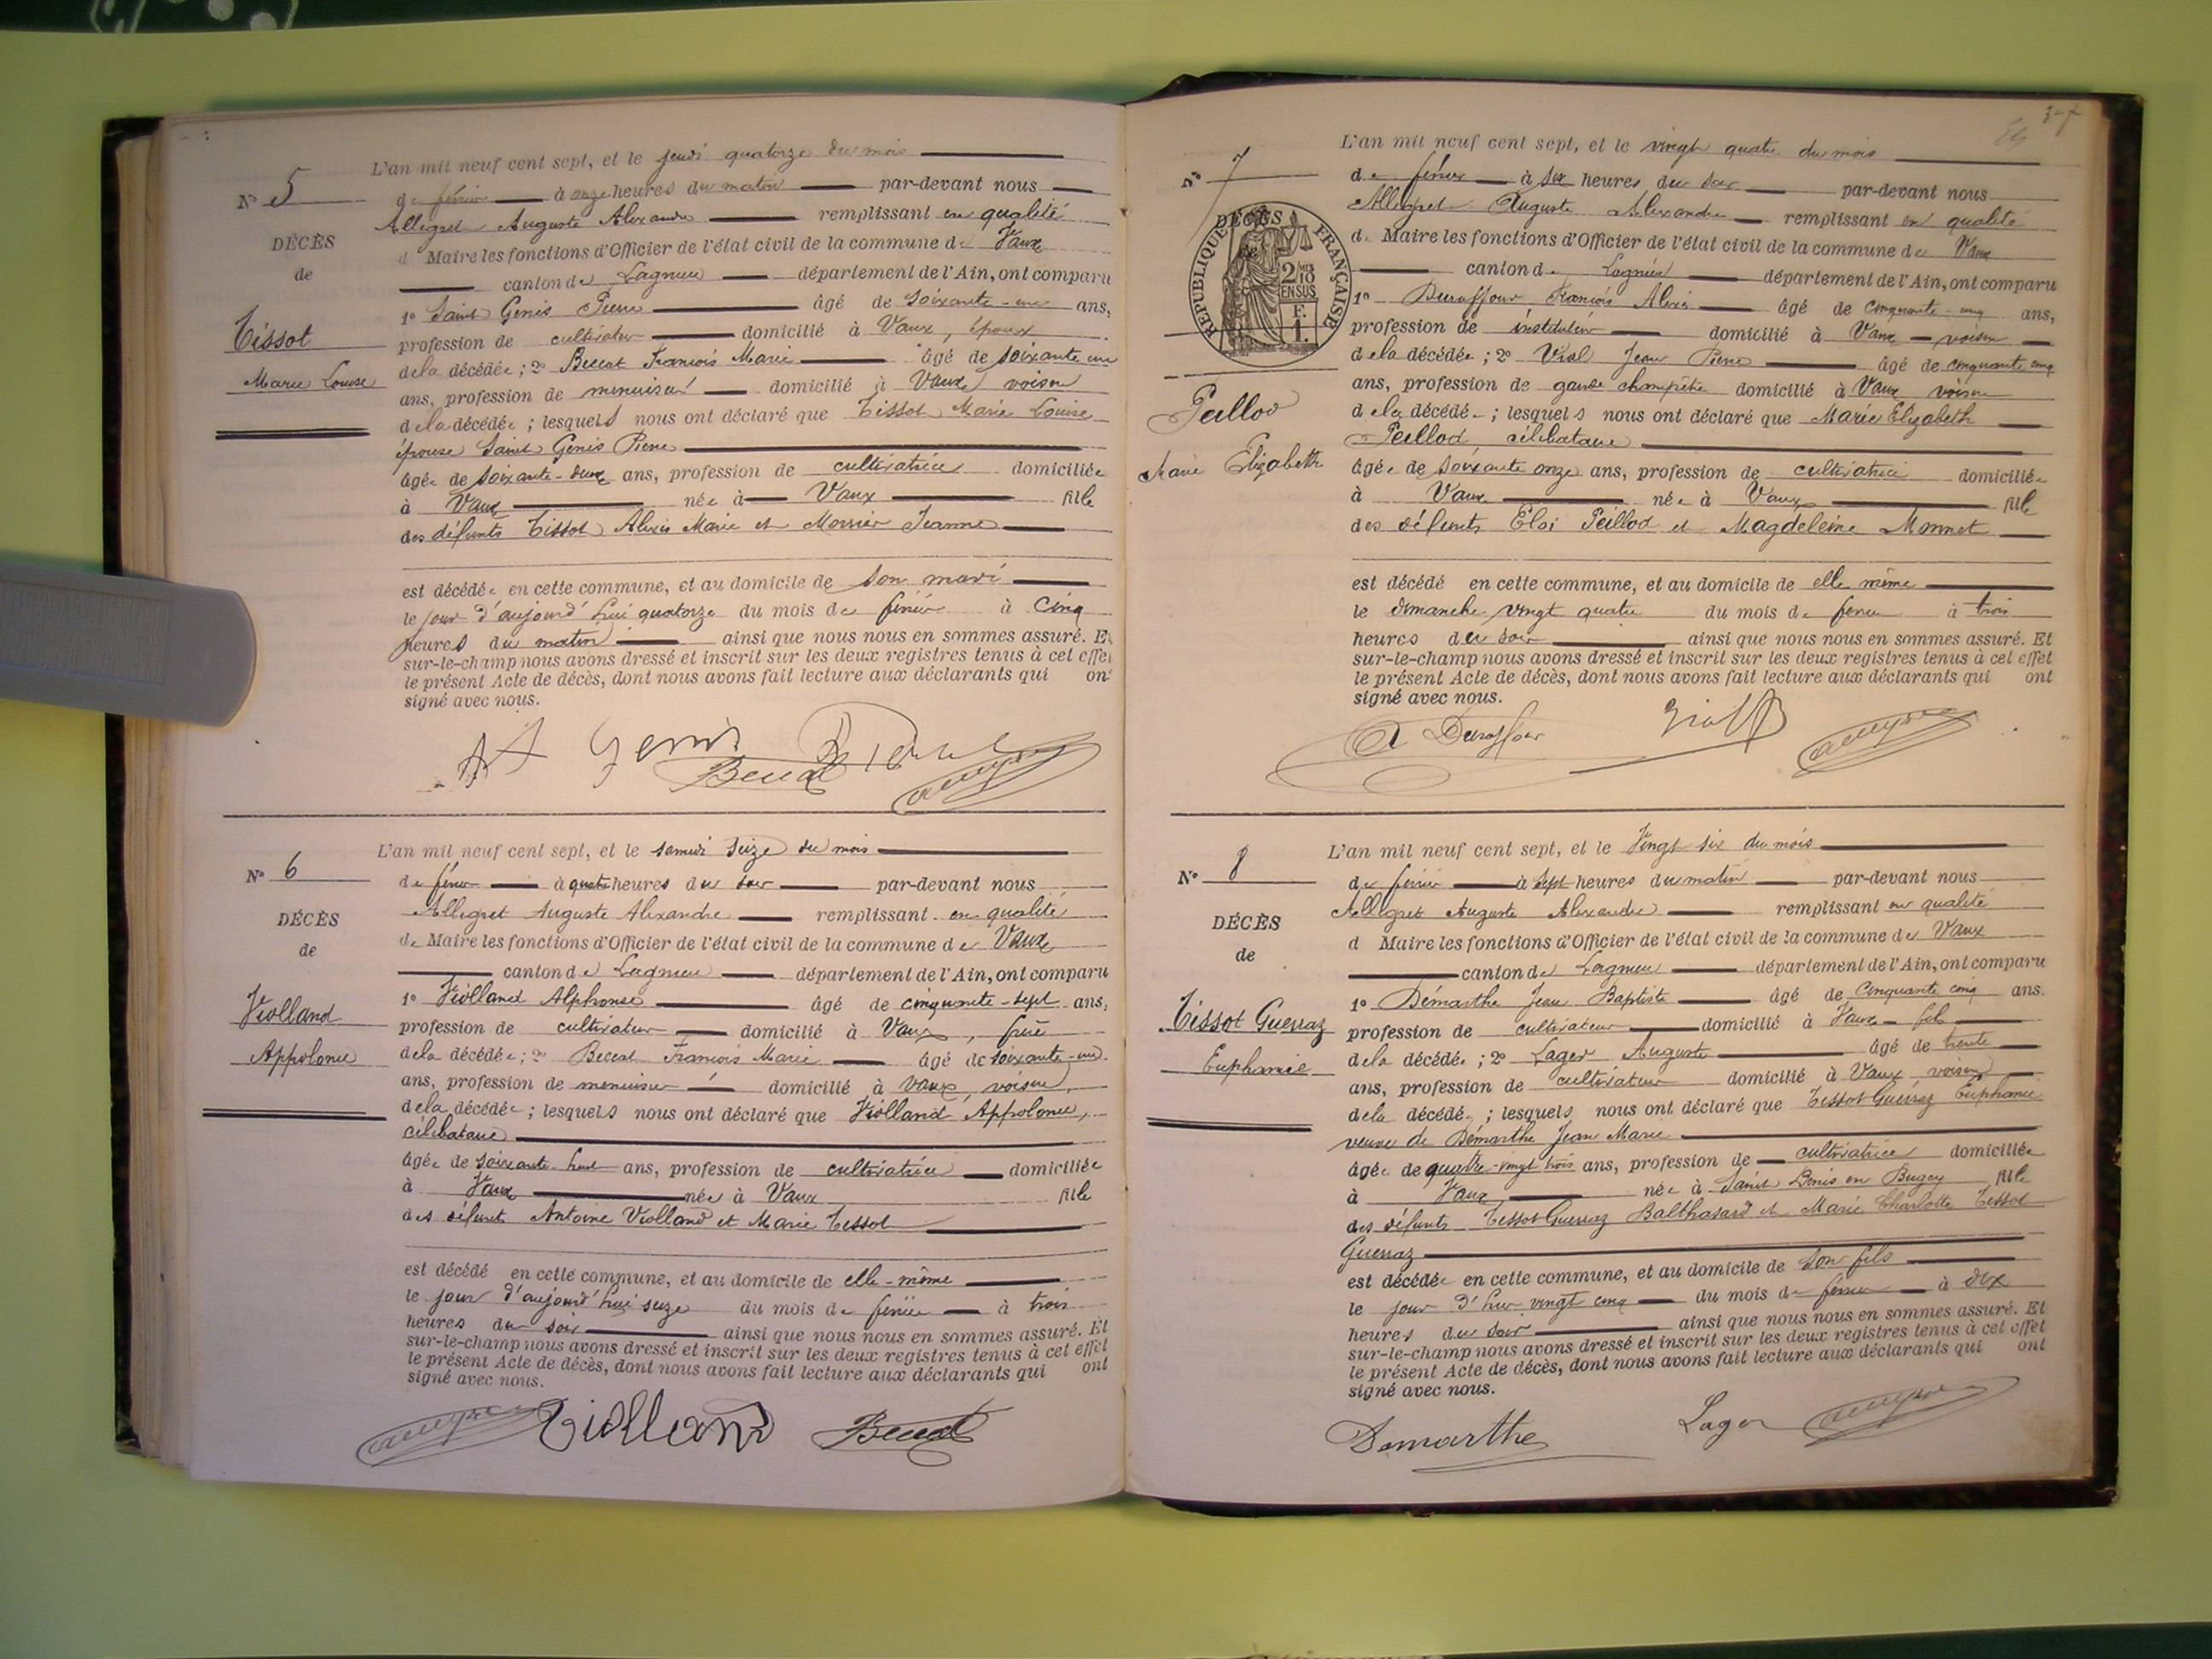 N° 5
DÉCÈS
de
Tissot
Marie Louise
L'an mil neuf cent sept, et le jeudi quatorze du mois
de février à onze heures du matin par-devant nous
Allegret Auguste Alexandre remplissant en qualité
d Maire les fonctions d'Officier de l'état civil de la commune de Vaux
canton de Lagnieu département de l'Ain, ont comparu
1° Saint Genis Pierre âgé de soixante-un ans,
profession de cultivateur domicilié à Vaux, époux
de la décédée ; 2° Beccat François Marie âgé de soixante un
ans, profession de menuisier domicilié à Vaux voisin
de la décédée ; lesquels nous ont déclaré que Tissot Marie Louise
épouse Saint Genis Pierre
âgée de soixante-deux ans, profession de cultivatrice domiciliée
à Vaux née à Vaux fille
des défunts Tissot Alexis Marie et Jeanne
est décédée en cette commune, et au domicile de son mari
le jour d'aujourd'hui quatorze du mois de février à cinq
heures du matin ainsi que nous nous en sommes assuré. Et
sur-le-champ nous avons dressé et inscrit sur les deux registres tenus à cet effet
le présent Acte de décès, dont nous avons fait lecture aux déclarants qui ont
signé avec nous.
St Genis Pierre
Beccat
N° 6
DÉCÈS
de
Violland
Appolonie
L'an mil neuf cent sept, et le samedi seize du mois
de février à quatre heures du soir par-devant nous
Allegret Auguste Alexandre remplissant en qualité
de Maire les fonctions d'Officier de l'état civil de la commune de Vaux
canton de Lagnieu département de l'Ain, ont comparu
1° Violland Alphonse âgé de cinquante-sept ans,
profession de cultivateur domicilié à Vaux, frère
de la décédée ; 2° Beccat François Marie âgé de soixante-un
ans, profession de menuisier domicilié à Vaux, voisin
de la décédée ; lesquels nous ont déclaré que Violland Appolonie,
célibataire
âgée de soixante-huit ans, profession de cultivatrice domiciliée
à Vaux née à Vaux fille
des défunts Antoine Violland et Marie Tissot
est décédé en cette commune, et au domicile de elle-même
le jour d'aujourd'hui seize du mois de février à trois
heures du soir ainsi que nous nous en sommes assuré. Et
sur-le-champ nous avons dressé et inscrit sur les deux registres tenus à cet effet
le présent Acte de décès, dont nous avons fait lecture aux déclarants qui ont
signé avec nous.
Violland Beccat
37
N° 7
DÉCÈS
de
RÉPUBLIQUE FRANÇAISE
2/10 EN SUS
F. 1.
Peillod
Marie Elizabeth
L'an mil neuf cent sept, et le vingt quatre du mois
de février à six heures du soir par-devant nous
Allegret Auguste Alexandre remplissant en qualité
de Maire les fonctions d'Officier de l'état civil de la commune de Vaux
canton de Lagnieu département de l'Ain, ont comparu
1° Duraffour François Alexis âgé de cinquante-cinq ans,
profession de instituteur domicilié à Vaux - voisin
de la décédée ; 2° Viol Jean Pierre âgé de cinquante cinq
ans, profession de garde champêtre domicilié à Vaux voisin
de la décédé ; lesquels nous ont déclaré que Marie Elizabeth
Peillod, célibataire
âgée de soixante onze ans, profession de cultivatrice domiciliée
à Vaux née à Vaux fille
des défunts Eloi Peillod et Magdeleine Monnet
est décédé en cette commune, et au domicile de elle même
le dimanche vingt quatre du mois de février à trois
heures du soir ainsi que nous nous en sommes assuré. Et
sur-le-champ nous avons dressé et inscrit sur les deux registres tenus à cet effet
le présent Acte de décès, dont nous avons fait lecture aux déclarants qui ont
signé avec nous.
A Duraffour
N° 8
DÉCÈS
de
Tissot Guerraz
Euphanie
L'an mil neuf cent sept, et le Vingt six du mois
de février à sept heures du matin par-devant nous
Allegret Auguste Alexandre remplissant en qualité
d Maire les fonctions d'Officier de l'état civil de la commune de Vaux
canton de Lagnieu département de l'Ain, ont comparu
1° Démarthe Jean Baptiste âgé de cinquante cinq ans.
profession de cultivateur domicilié à Vaux - fils
de la décédée ; 2° Lager Auguste âgé de trente
ans, profession de cultivateur domicilié à Vaux voisin
de la décédé ; lesquels nous ont déclaré que Tissot Guerraz Euphanie
veuve de Démarthe Jean Marie
âgée de quatre-vingt trois ans, profession de cultivatrice domiciliée
à Vaux née à Saint Denis en Bugey fille
des défunts Tissot Guerraz Balthasard et Marie Charlotte Tissot
Guerraz
est décédée en cette commune, et au domicile de son fils
le jour d'hier vingt cinq du mois de février à dix
heures du soir ainsi que nous nous en sommes assuré. Et
sur-le-champ nous avons dressé et inscrit sur les deux registres tenus à cet effet
le présent Acte de décès, dont nous avons fait lecture aux déclarants qui ont
signé avec nous.
Demarthe Lager